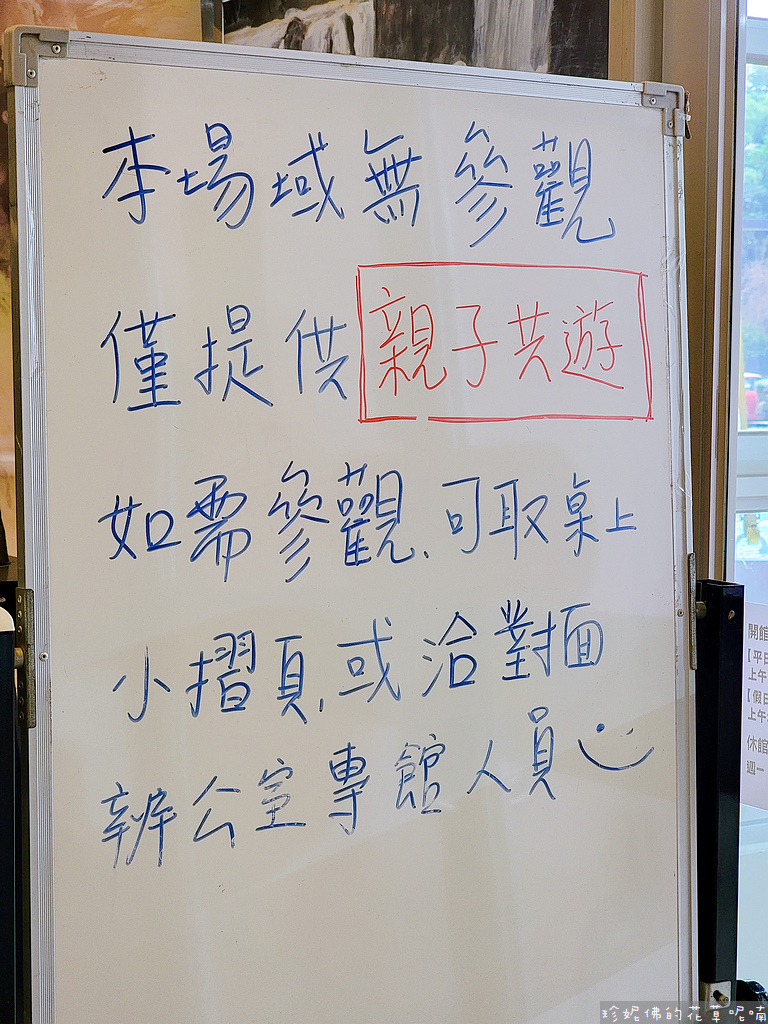 本場域無參觀
僅提供親子共遊
如需參觀、可取桌上
小摺頁、或洽對面
辦公室專館人員
開館
【平日
上午
【假日
上午
休館
週一
珍妮佛的花草呢喃